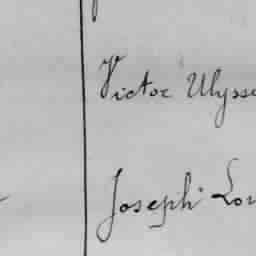 Victor Ulysse
Joseph Lou